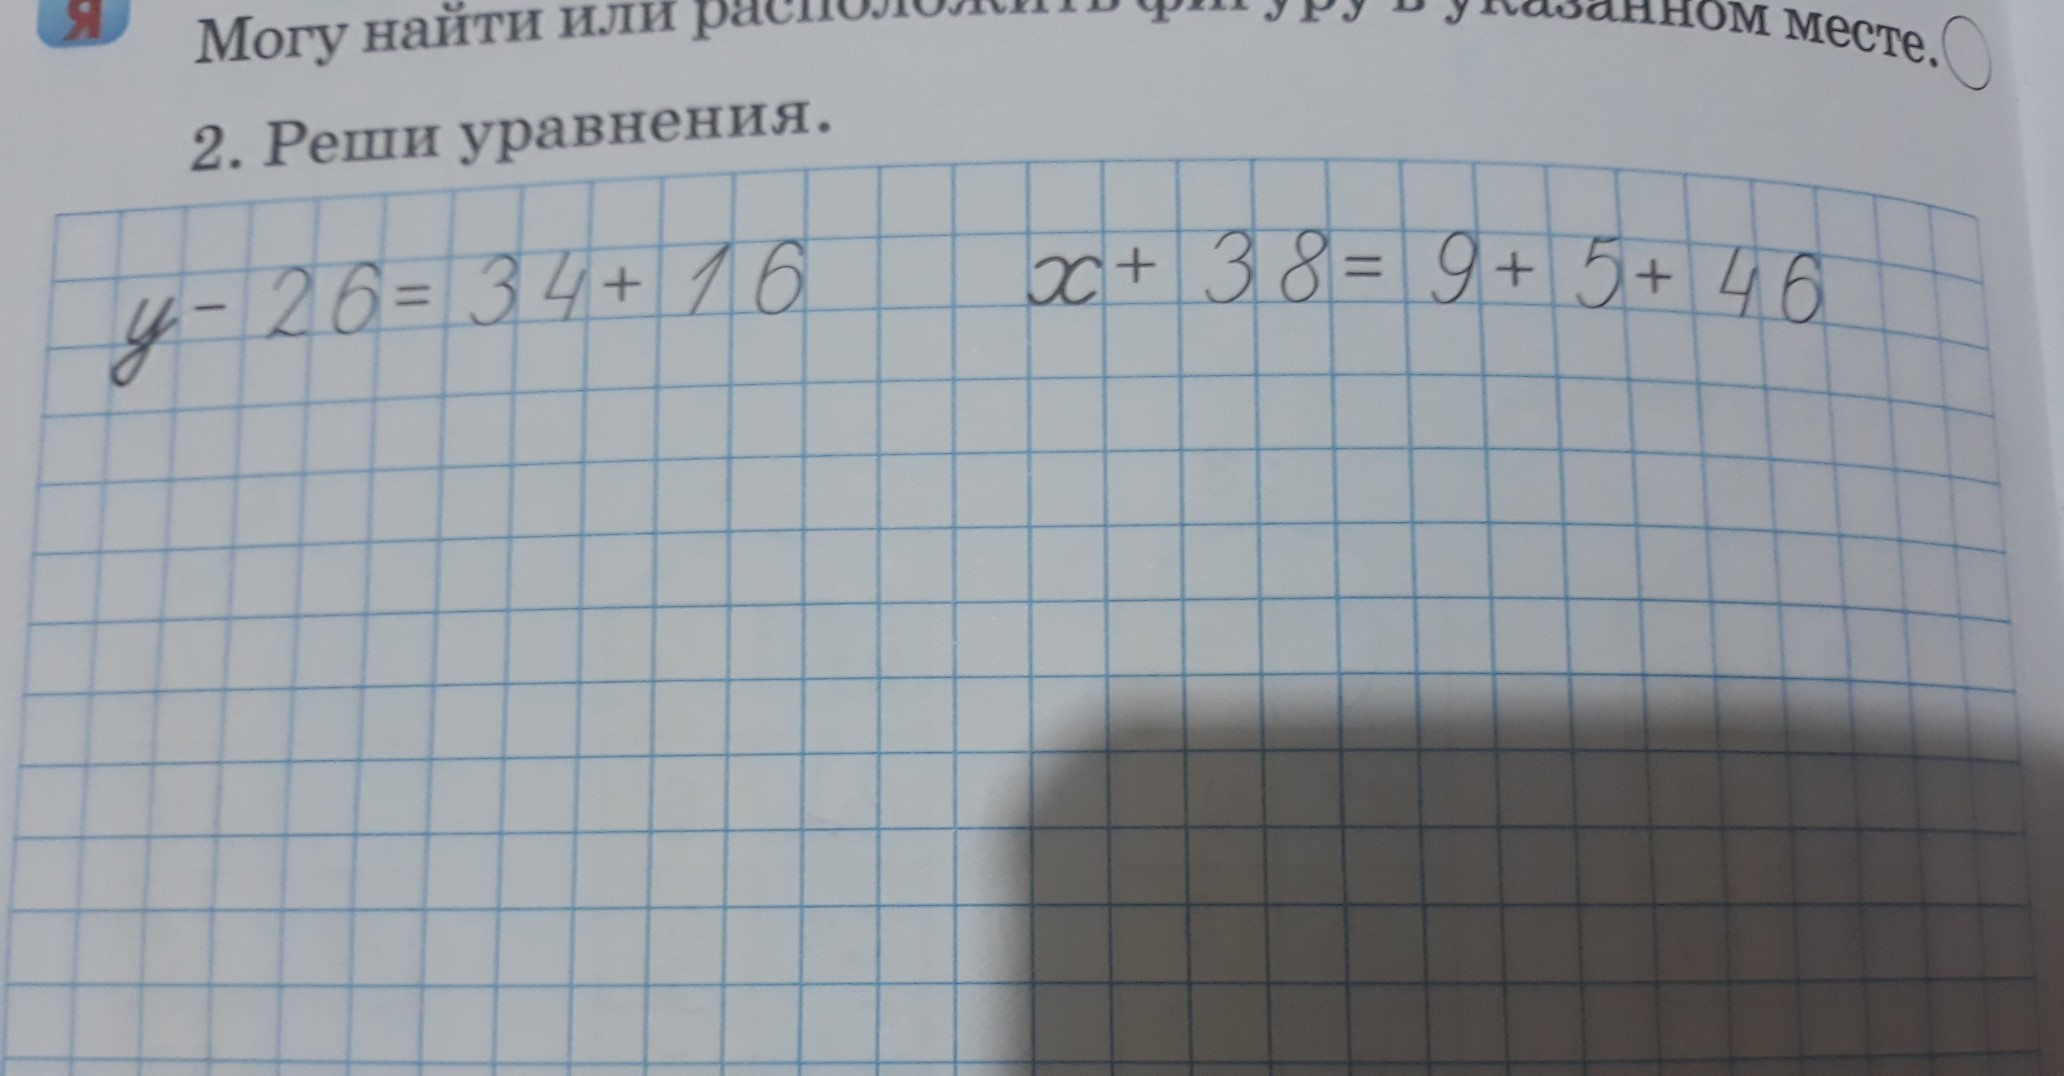 Я
Могу найти или расположить фигуру в указанном месте.
2. Реши уравнения.
у - 26 = 34 + 16
х + 38 = 9 + 5 + 46